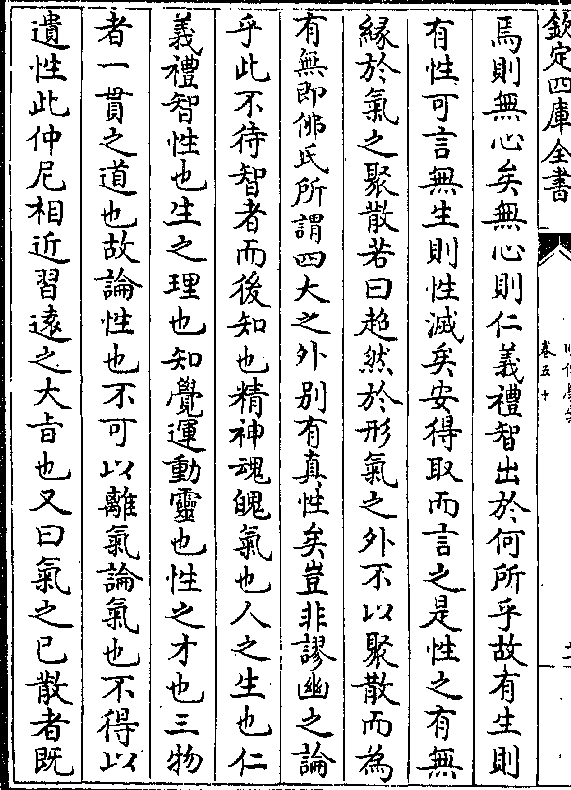 欽定四庫全書
卷五十
焉則無心矣無心則仁義禮智出於何所乎故有生則
有性可言無生則性滅矣安得取而言之是性之有無
緣於氣之聚散若曰超然於形氣之外不以聚散而為
有無即佛氏所謂四大之外别有真性矣豈非謬幽之論
乎此不待智者而後知也精神魂魄氣也人之生也仁
義禮智性也生之理也知覺運動靈也性之才也三物
者一貫之道也故論性也不可以離氣論氣也不得以
遺性此仲尼相近習遠之大旨也又曰氣之已散者既